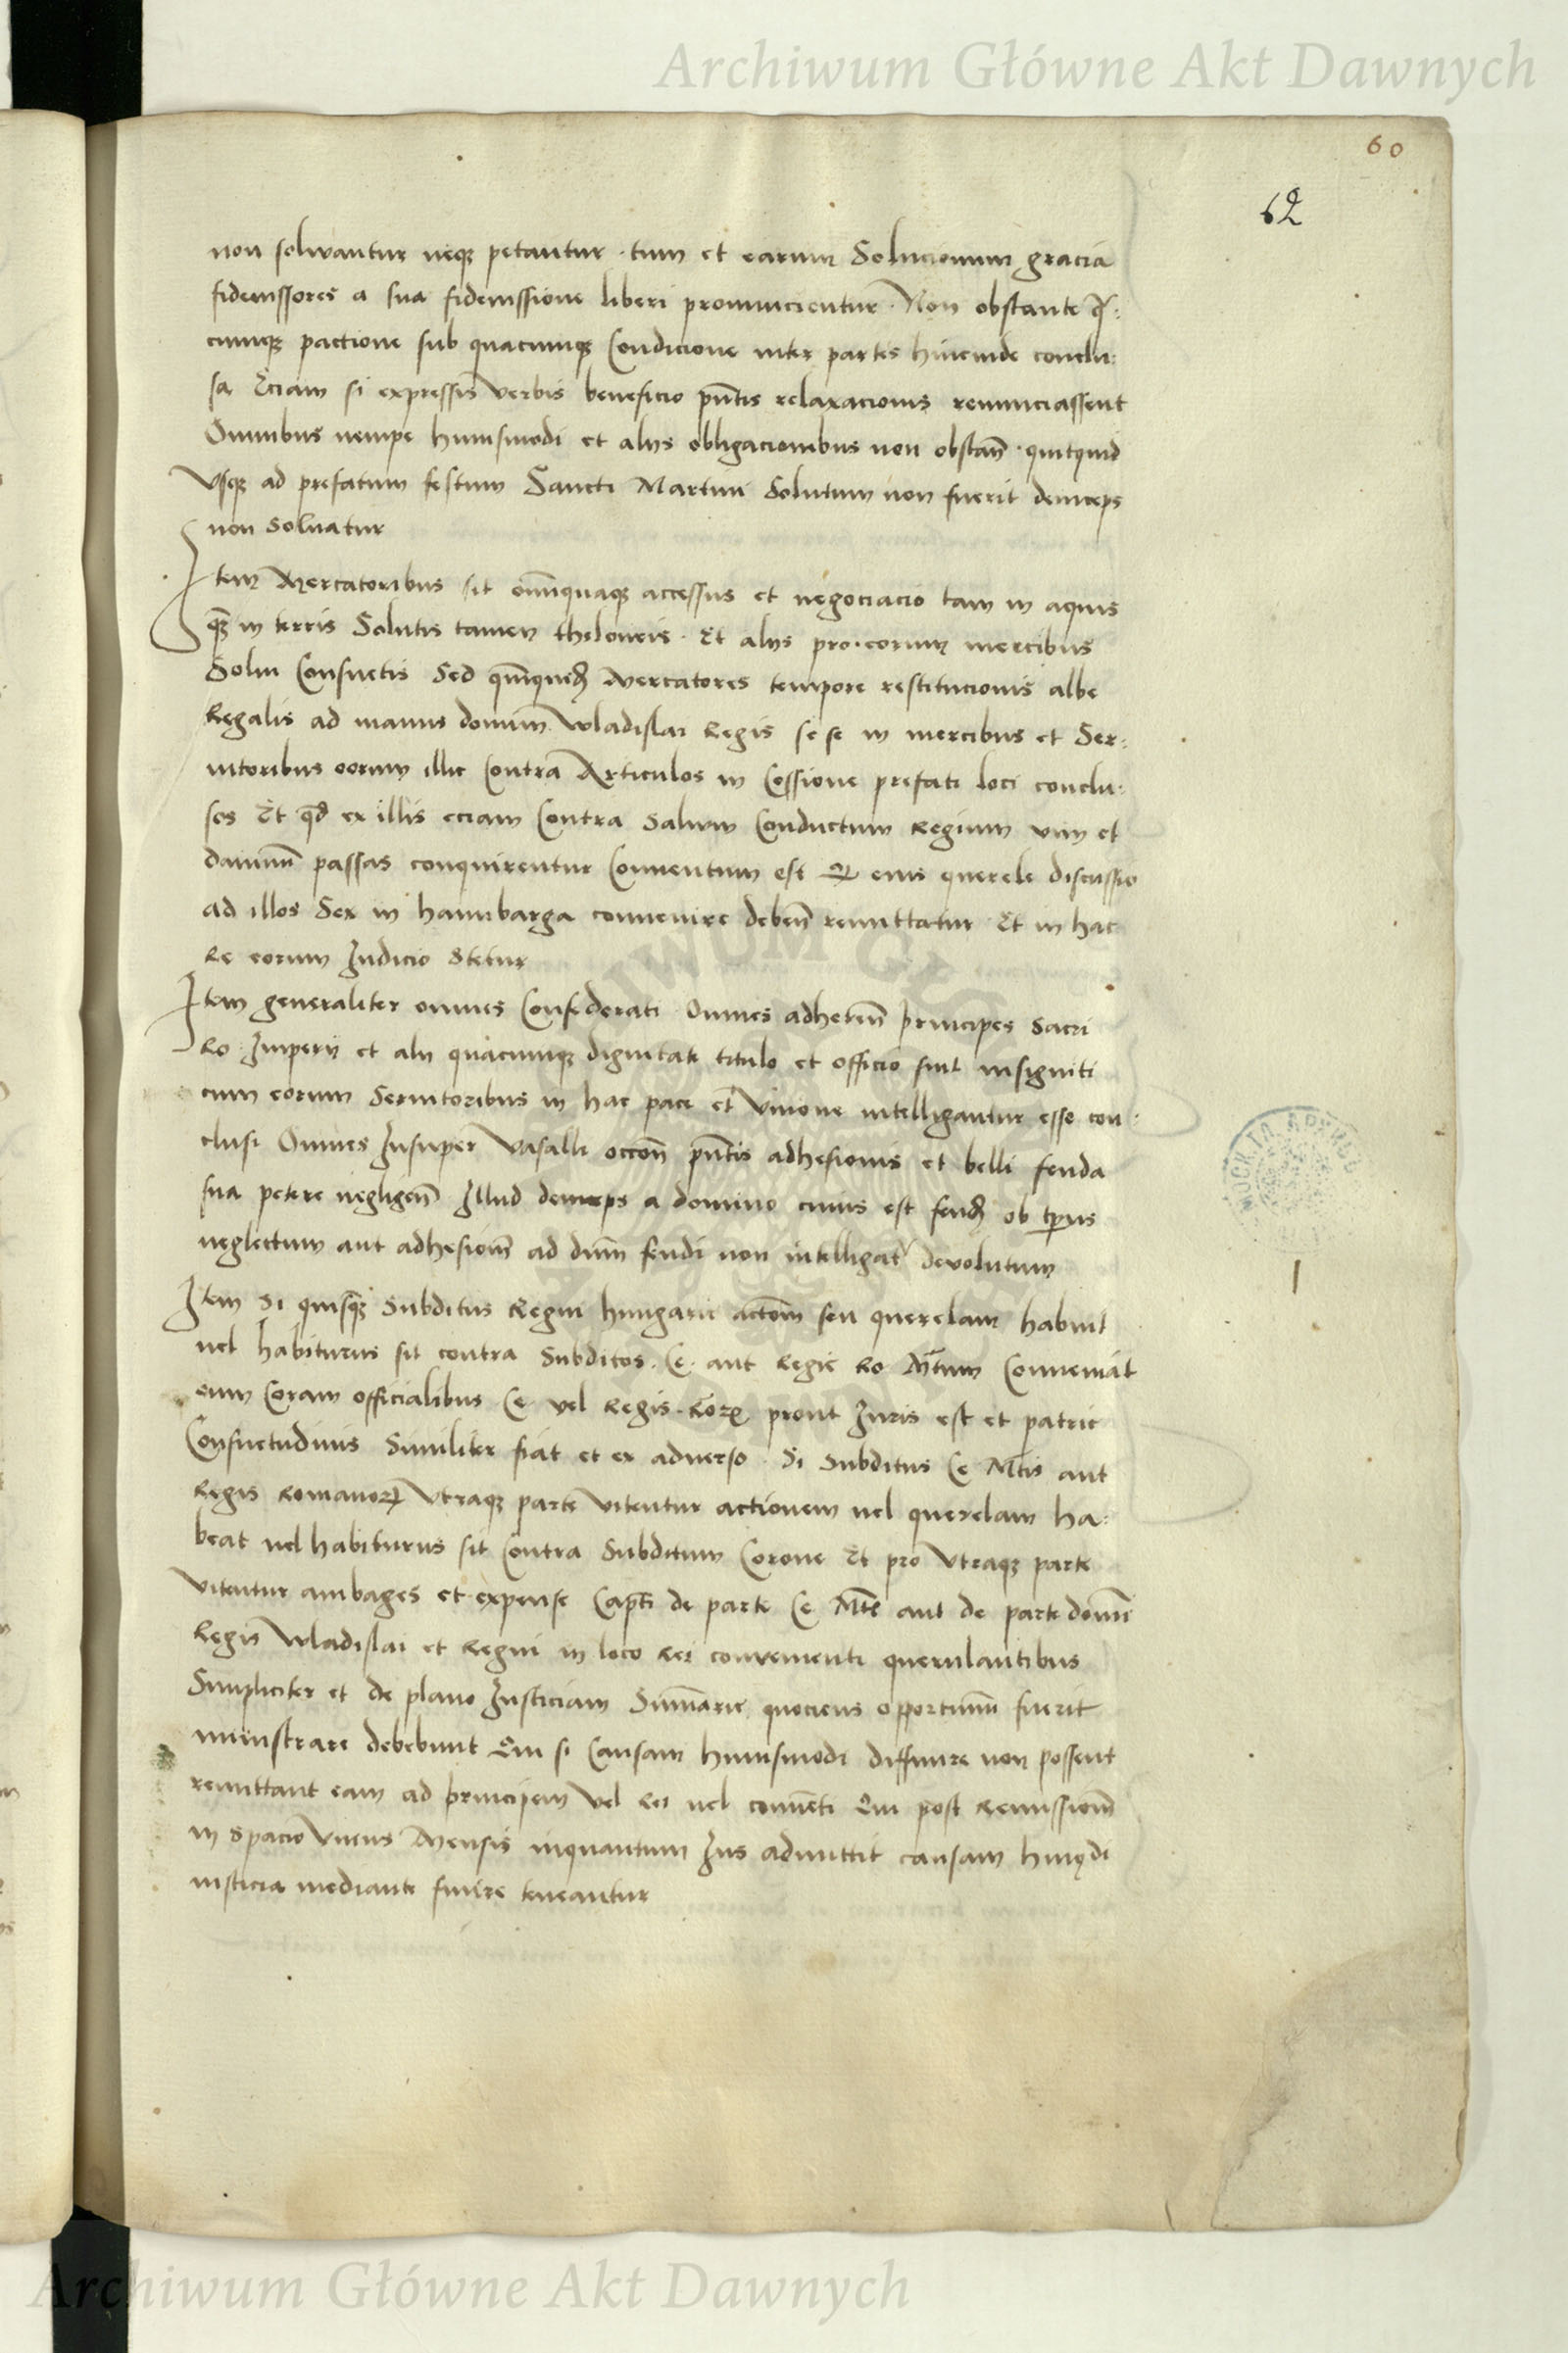 Archiwum Główne Akt Dawnych
60
62
non solvantur neqz petantur · tum et earum Solucionum gracia
fideiussores a sua fideiussione liberi pronuncientur · Non obstante q̄:
cumqz pactione sub quacumqz Condicione inter partes hincinde conclu:
sa Eciam si expressis verbis beneficio pn̄tis relaxacionis renunciassent
Omnibus nempe huiusmodi et alys obligacionibus non obstan̄ · quitquid
Vsqz ad prefatum festum Sancti Martini Solutum non fuerit deinceps
non soluatur
Item Mercatoribus sit om̄iquaqz accessus et negociacio tam in aquis
q̄z in terris Solutis tamen theloneis · Et alys pro eorum mercibus
Solui Consuetis Sed Mercatores tempore restitucionis albe
Regalis ad manus domini Wladislai Regis se se in mercibus et Ser:
uitoribus eorum illic Contra Articulos in Cessione prefati loci conclu:
sos Et qd̄ ex illis eciam Contra Saluum Conductum Regium vim et
damnu̅ passas conquirentur Conuentum est eius querele discussio
ad illos Sex in hamburga conuenire deben̄ remittatur Et in hac
Re eorum Judicio Stetur
Item generaliter omnes Confederati Omnes adheren̄ principes Sacri
Ro Imperij et alij quacumqz dignitate titulo et officio sint insigniti
cum eorum Seruitoribus in hac pace et Vnione intelligantur esse con:
clusi Omnes Insuper Vasalli occōn̄ pn̄tis adhesionis et belli feuda
sua petere negligen̄ Illud deinceps a domino cuius est ob tp̄us
neglectum aut adhesionē ad dn̄m feudi non intelligat̄ devolutum
Item Si quisqz Subditus Regni hungarie actōem seu querelam habuit
uel habiturus sit contra Subditos · Ce · aut Regie Ro Mt̄um Conueniat
eum Coram officialibus Ce vel Regis Ror̄ prout Juris est et patrie
Consuetudinis Similiter fiat et ex aduerso · Si Subditus Ce Mt̄is aut
Regis Romanor̄ Vtraqz parte vitentur actionem uel querelam ha:
beat uel habiturus sit Contra Subditum Corone Et pro Vtraqz parte
vitentur ambages et expense Capt̄i de parte Ce Mt̄e aut de parte domini
Regis Wladislai et Regni in loco Rei conuenienti querulantibus
Simpliciter et de plano Iusticiam Sum̄arie quociens oportunu̅ fuerit
ministrare debebunt Qui si Causam huiusmodi diffinire non possent
remittant eam ad principem Vel Rei uel conuenti Qui post Remissionē
in Spacio Vnius Mensis inquantum Jus admittit causam hm̄odi
iusticia mediante finire teneantur
Archiwum Główne Akt Dawnych